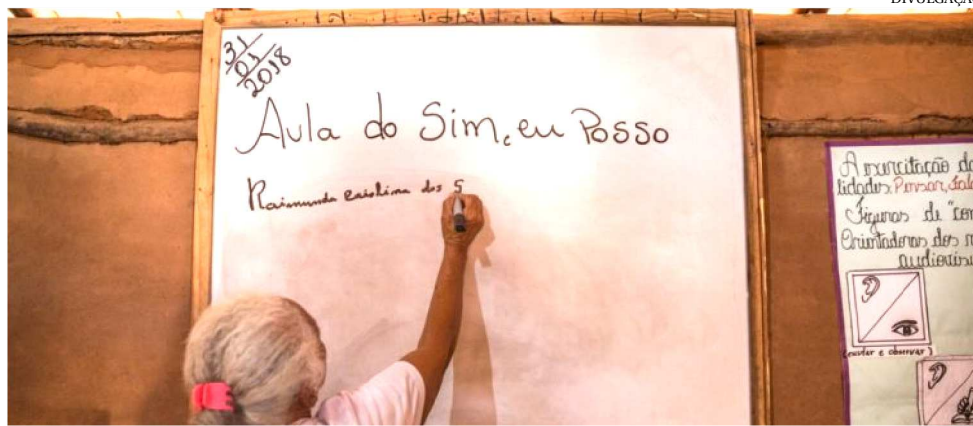 31
01
2018
Aula do Sim, eu Posso
Raimunda dos S
A exercitação d
lidades: Pensar, fal
Figuras de "co
Orientadoras dos
audiovis
(escutar e observar)